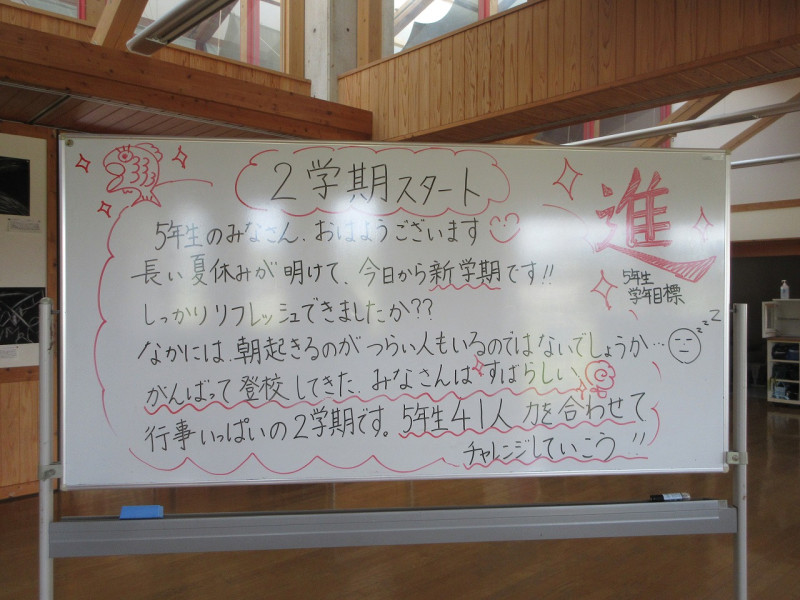 2学期スタート
5年生のみなさん、おはようございます
長い夏休みが明けて、今日から新学期です!!
しっかりリフレッシュできましたか??
なかには、朝起きるのがつらい人もいるのではないでしょうか…
zzz
がんばって登校してきた、みなさんはすばらしい
行事いっぱいの2学期です。5年生41人 力を合わせて
チャレンジしていこう!!
進
5年生
学年目標